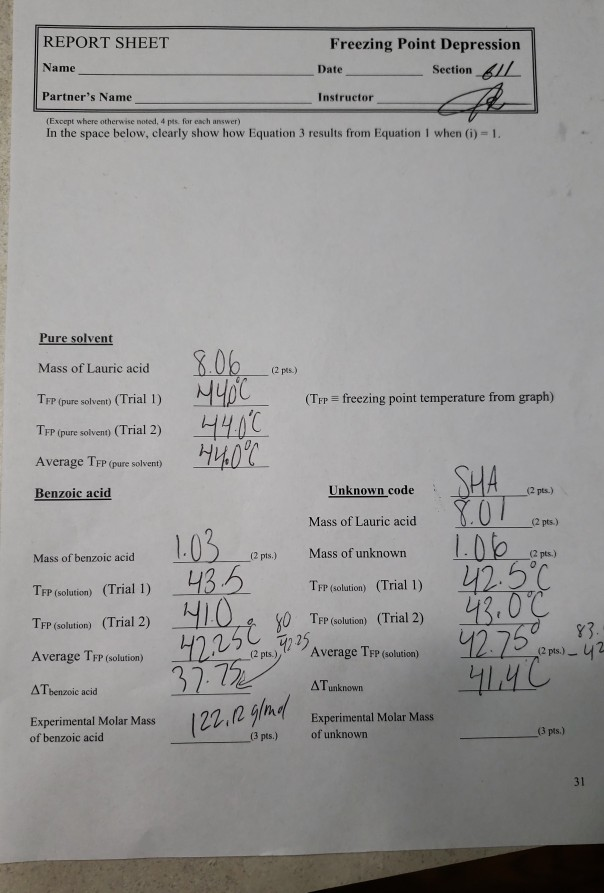 REPORT SHEET Freezing Point Depression
Name Date Section 611
Partner's Name Instructor
(Except where otherwise noted, 4 pts. for each answer)
In the space below, clearly show how Equation 3 results from Equation 1 when (i) = 1.
Pure solvent
Mass of Lauric acid 8.06 (2 pts.)
TFP (pure solvent) (Trial 1) 44.0°C (TFP ≡ freezing point temperature from graph)
TFP (pure solvent) (Trial 2) 44.0°C
Average TFP (pure solvent) 44.0°C
Benzoic acid Unknown code SHA (2 pts.)
Mass of Lauric acid 8.01 (2 pts.)
Mass of benzoic acid 1.03 (2 pts.) Mass of unknown 1.06 (2 pts.)
TFP (solution) (Trial 1) 43.5 TFP (solution) (Trial 1) 42.5°C
TFP (solution) (Trial 2) 41.0 80 TFP (solution) (Trial 2) 43.0°C
Average TFP (solution) 42.25C (2 pts.) 42.25 Average TFP (solution) 42.75° (2 pts.) - 42
ΔTbenzoic acid 37.75 ΔTunknown 41.4C
Experimental Molar Mass of benzoic acid 122.12 g/mol (3 pts.) Experimental Molar Mass of unknown (3 pts.)
31